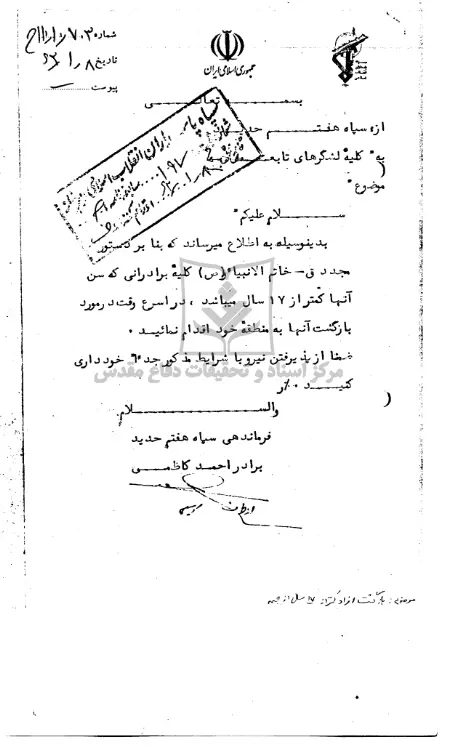 شماره
تاریخ
پیوست
جمهوری اسلامی ایران
بسمه تعالی
از: سپاه هفتم حدید
به: کلیه لشگرهای تابعه
موضوع:
سلام علیکم
بدینوسیله به اطلاع میرساند که بنا بر دستور
مجدد ق- خاتم الانبیاء (ص) کلیه برادرانی که سن
آنها کمتر از ۱۷ سال میباشد ، در اسرع وقت در مورد
بازگشت آنها به منطقه خود اقدام نمائید .
ضمنا از پذیرفتن نیرو با شرایط مذکور جدا خودداری
کنید .
مرکز اسناد و تحقیقات دفاع مقدس
والسلام
فرماندهی سپاه هفتم حدید
برادر احمد کاظمی
از طرف
موضوع: بازگشت افراد کمتر از ۱۷ سال از جبهه